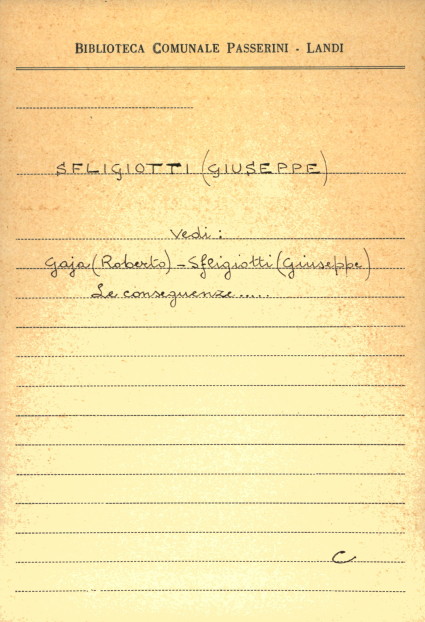 BIBLIOTECA COMUNALE PASSERINI - LANDI
SFLIGIOTTI (GIUSEPPE)
Vedi :
Gaja (Roberto) - Sfligiotti (Giuseppe)
Le conseguenze .....
C